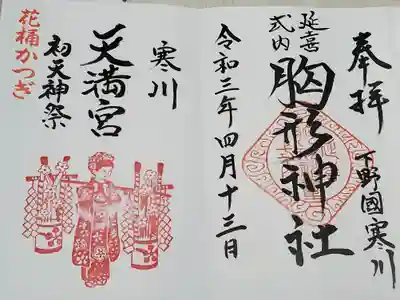 奉拝
下野國寒川
延喜
式内
胸形神社
令和三年四月十三日
寒川
天満宮
初天神祭
花桶かつぎ